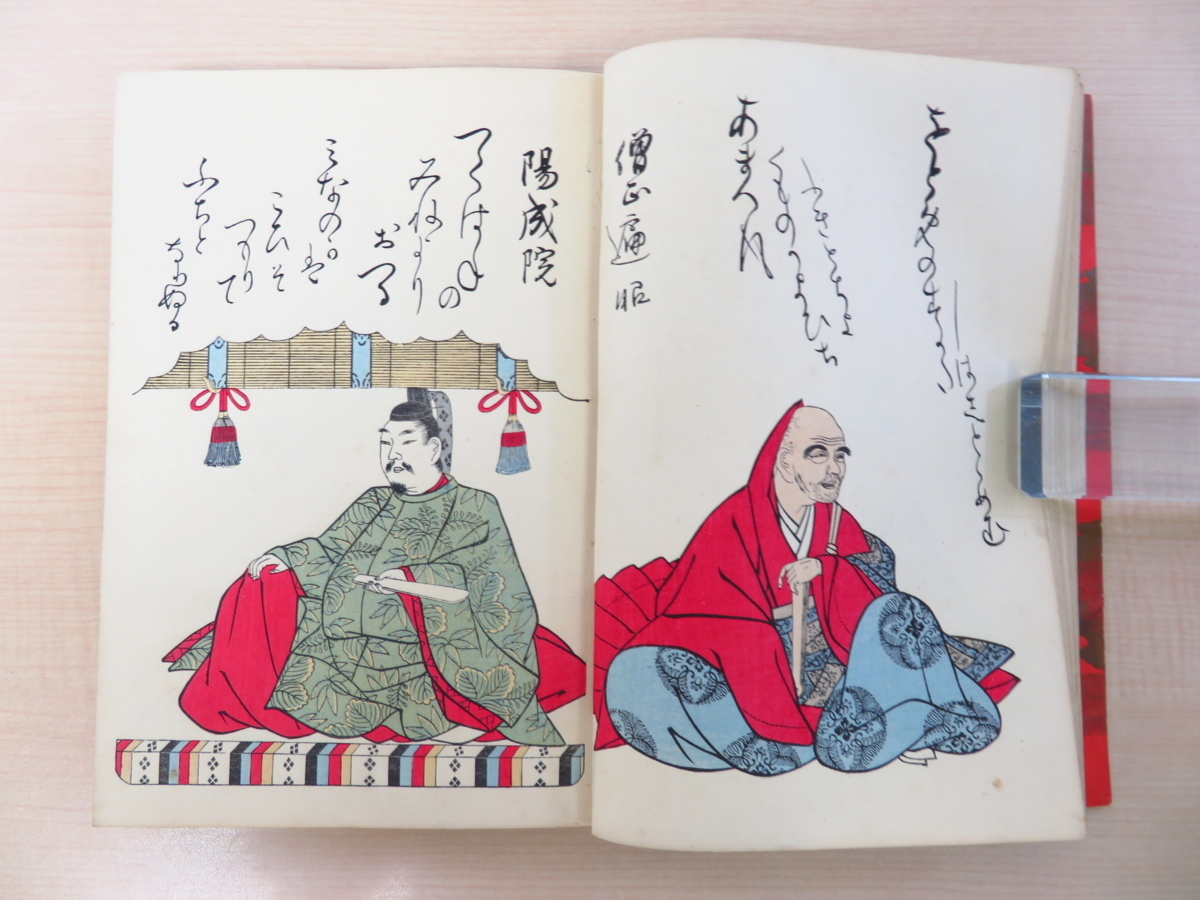 僧正遍昭
あまつ風
くものかよひち
ふきとちよ
をとめのすかた
しはしとゝめむ
陽成院
つくはねの
みねより
おつる
みなの川
こひそ
つもりて
ふちと
なりぬる